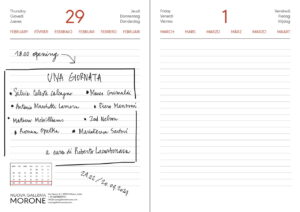 Thursday
Giovedì
Jueves
29
Jeudi
Donnerstag
Donderdag
FEBRUARY FÉVRIER FEBBRAIO FEBRUAR FEBRERO FEBRUARI
18.00 opening
UNA GIORNATA
Silvia Celeste Calcagno
Marco Grimaldi
Antonio Marchetti Lamera
Piero Mezzoni
Matthew McWilliams
Zoé Nelson
Roman Opalka
Mariateresa Sartori
a cura di Roberto Lacarbonara
29.02 / 26.04.2024
NUOVA GALLERIA
MORONE
Friday
Venerdì
Viernes
1
Vendredi
Freitag
Vrijdag
MARCH MARS MARZO MÄRZ MARZO MAART